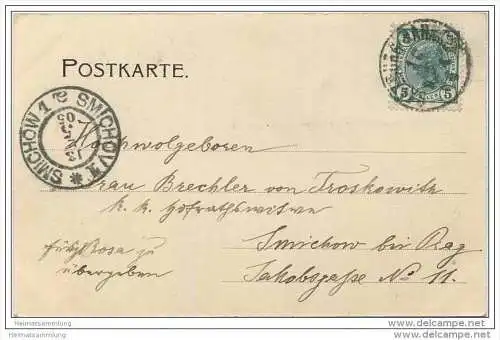 POSTKARTE.
SMICHOW 1 SMICHOV 1
13
5
05
5 5
Hochwolgeboren
Frau Brechler von Troskowitz
k. k. Hofrathswitwe
Smichow bei Prag
Jakobsgasse No 11.
für Rosa zu
übergeben
Heimatsammlung
Heimatsammlung
www.delcampe.net